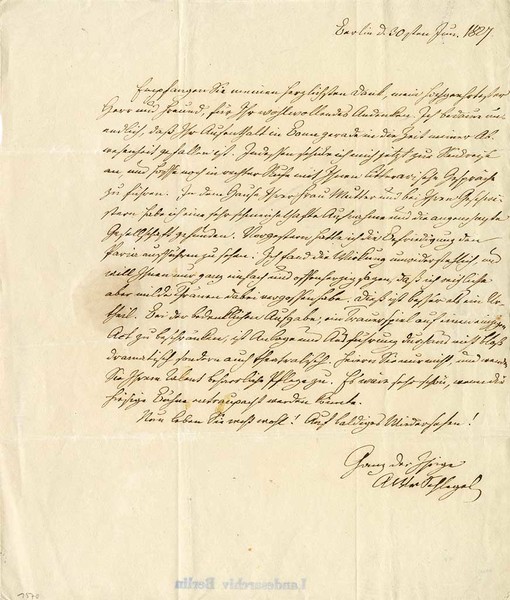 Berlin d. 30sten Jun. 1827.
Empfangen Sie meinen herzlichsten Dank, mein hochgeehrtester
Herr und Freund, für Ihr wohlwollendes Andenken. Ich bedaure un-
endlich, daß Ihr Aufenthalt in Bonn gerade in die Zeit meiner Ab-
wesenheit gefallen ist. Indessen schicke ich mich jetzt zur Rückreise
an, und hoffe noch in Ihnen litterarische Gespräche
zu führen. In dem Hause Ihrer Frau Mutter und bei Ihren Geschwi-
stern habe ich eine sehr schmeichelhafte Aufnahme und die angenehmste
Gesellschaft gefunden. Vorgestern hatte ich die Befriedigung den
Paria aufführen zu sehen. Ich fand die Wirkung unwiderstehlich und
will Ihnen nur ganz einfach und offenherzig sagen, daß ich reichliche
aber milde Thränen dabei vergossen habe. Dieß ist besser als ein Ur-
theil. Bei der bedenklichen Aufgabe, ein Trauerspiel auf einen einzigen
Act zu beschränken, ist Anlage und Ausführung durchaus nicht bloß
dramatisch sondern auch theatralisch. Feiern Sie nur nicht, und wenden
Sie Ihrem Talent beharrliche Pflege zu. Es wäre sehr schön, wenn die
hiesige Bühne werden könnte.
Nun leben Sie recht wohl! Auf baldiges Wiedersehen!
Ganz der Ihrige
AWvSchlegel
Landesarchiv Berlin